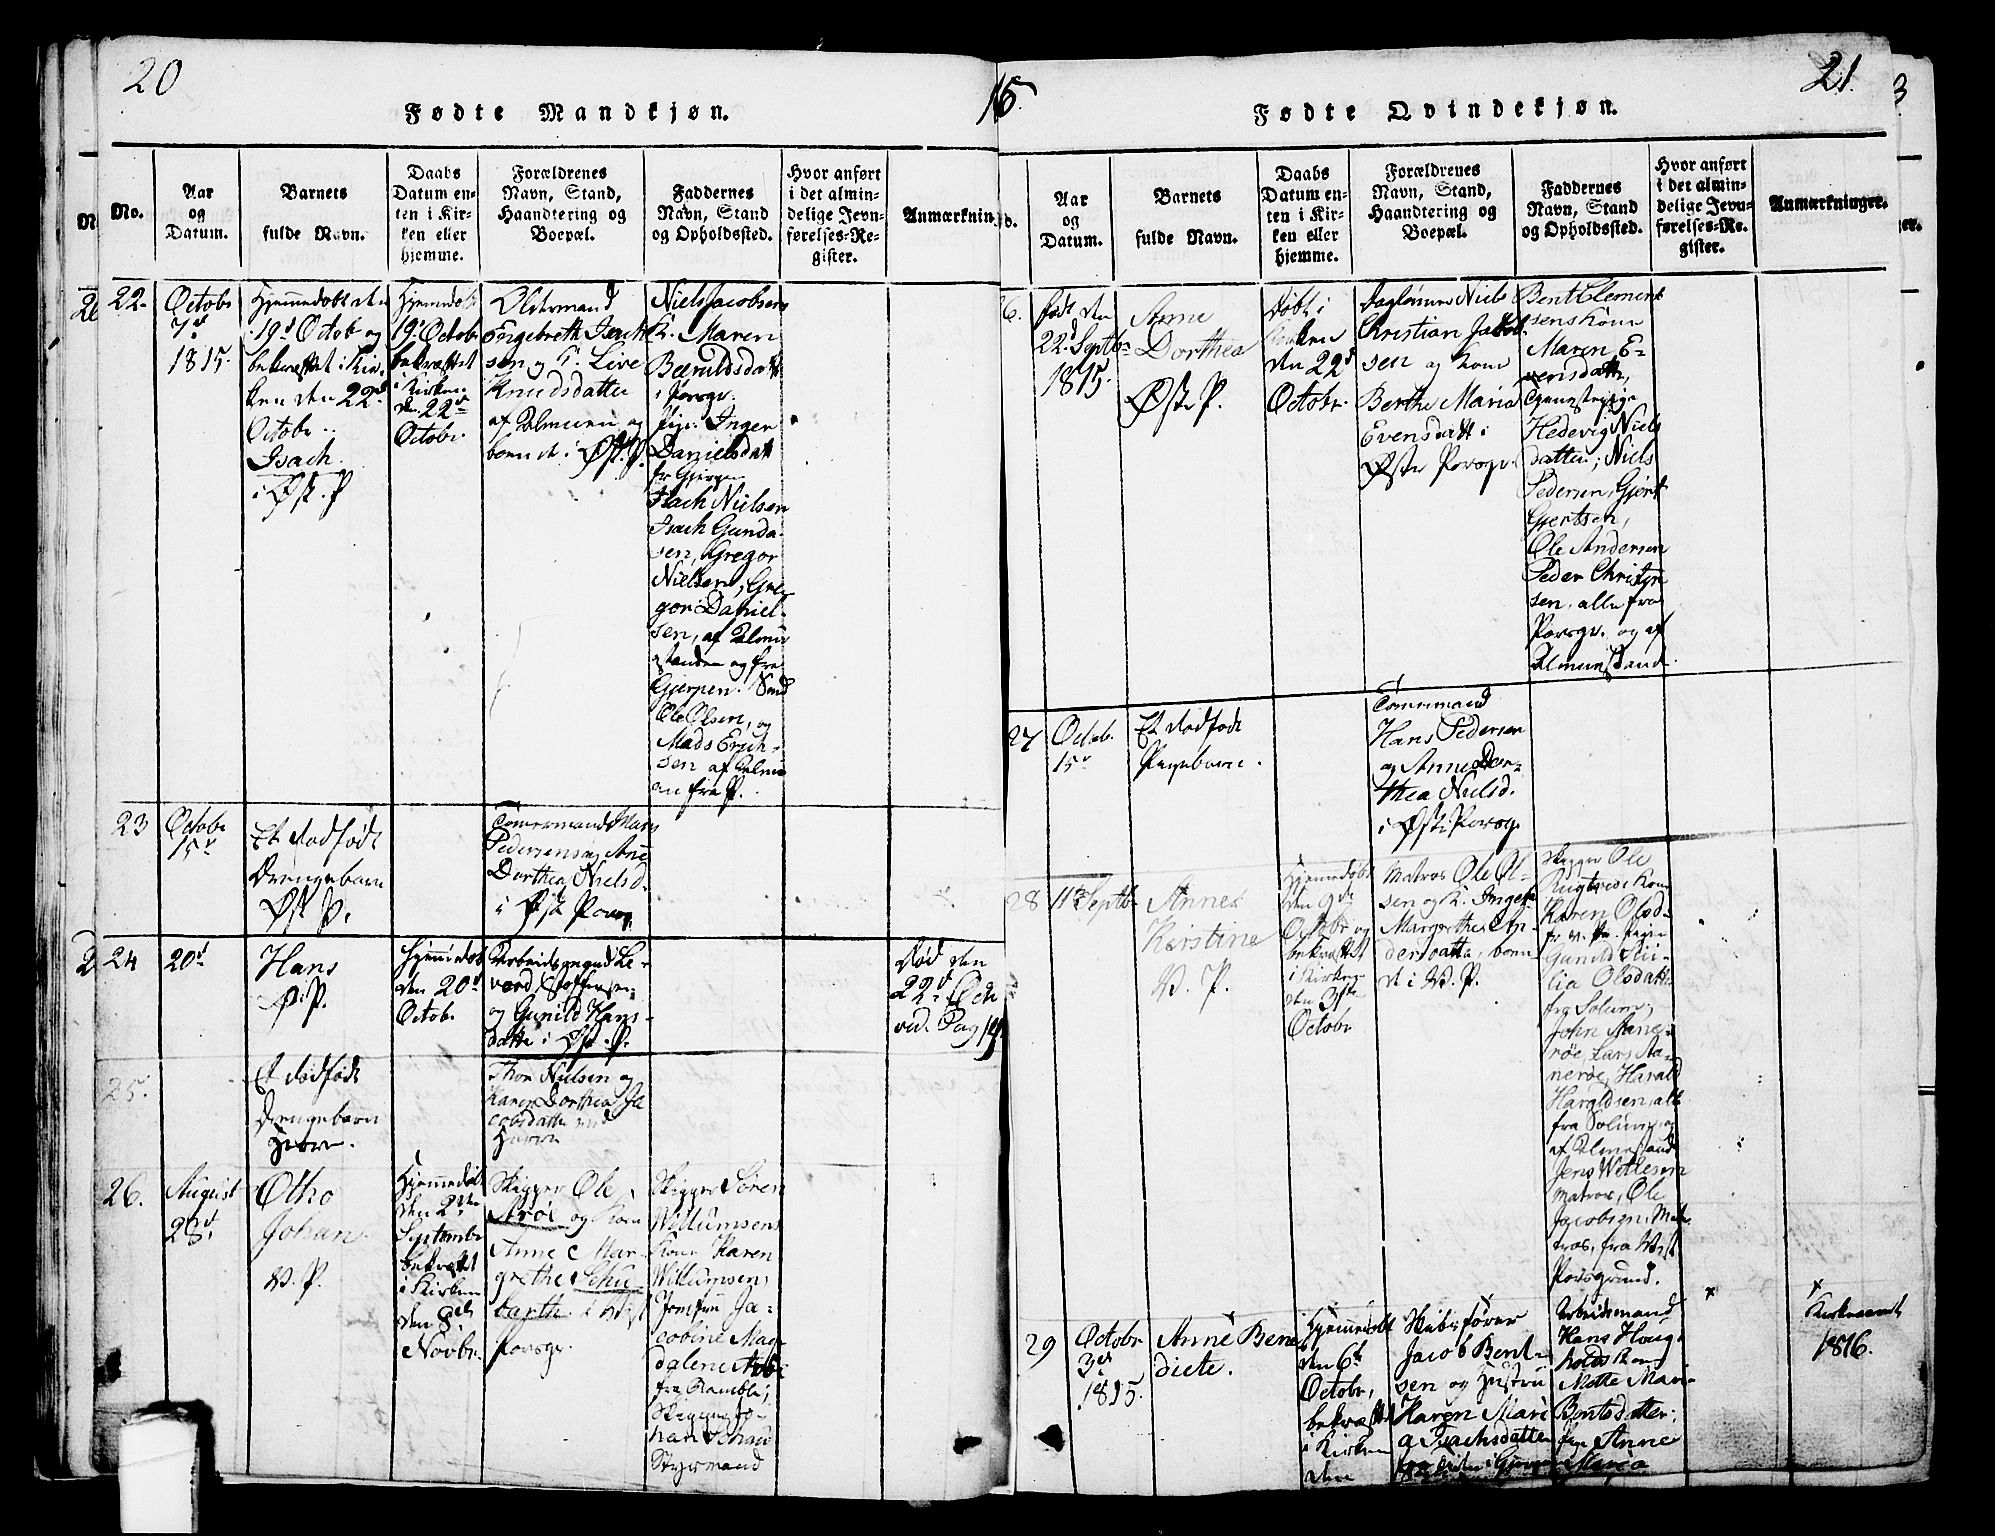 20
Fødte Mandkjøn.
No.
Aar
og
Datum.
Barnets
fulde Navn.
Daabs
Datum en-
ten i Kir-
ken eller
hjemme.
Forældrenes
Navn, Stand,
Haandtering og
Boepæl.
Faddernes
Navn, Stand
og Opholdssted.
Hvor anført
i det almin-
delige Jevn-
førelses-Re-
gister.
Anmærknin
22.
Octobr
7d
1815.
Hjemmedøbt den
19d Octob og
bekræftet i Kir-
ken den 22d
Octobr.
Isach.
i Øst. P
Hjemedøbt
19d Octob
bekræftet
i Kirken
den 22d
Octobr.
Oldermand
Engebreth Isach
sen og
Live
Knudsdatter
af Almuen og
boende i Øst. P.
Niels Jacobsens
K. Maren
Beruldsdatt
i Porsgr.
Pige Inger
Danielsdatt
fr Gjerpen
Isach Nielsen
Isach Gunda-
sen, Gregor
Nielsen, Gre-
gor Daniel-
sen, af Almu
standen og fra
Gjerpen.
Ole Olsen, og
Mads Erich-
sen af Almu
en fra P.
23
Octobr
15d
Et dødfødt
Drengebarn
Øst P.
Tømermand Hans
Pedersen og Anne
Dorthea Nielsd.
i Øst Porsg.
24
20d
Hans
Ø. P.
Hjemmedøbt
den 20d
Octob.
Arbeidsmand
Stoffersen
og Gunild Hans-
datter i Øst. P.
død den
22d Oct
vid. Pag
25.
Et dødfødt
Drengebarn
Thor Nielsen og
Karen Dorthea Ja
cobsdatter
26.
August
28d
Otho
Johan
W. P.
Hjemmedøbt
den 2den
Septembr
bekræftet
i Kirken
den 8de
Novbr.
Skipper Ole
Arøe og Kone
Anne Mar-
grethe Schu
barth i West
Porsgr.
Skipper Søren
Willumsens
Kone Karen
Willumsen,
Jomfru Ja-
cobine Mag-
dalene
fra Bamble;
Skipper Jo-
han
Styrmand
15.
21.
Fødte Qvindekjøn.
Aar
og
Datum.
Barnets
fulde Navn.
Daabs
Datum en-
ten i Kir-
ken eller
hjemme.
Forældrenes
Navn, Stand,
Haandtering og
Boepæl.
Faddernes
Navn, Stand
og Opholdssted.
Hvor anført
i det almin-
delige Jevn-
førelses-Re-
gister.
Anmærkninger.
6.
født den
22d Septbr
1815.
Anne
Dorthea
Øst P.
Døbt i
Kirken
den 22d
Octobr.
Dagleiner Niels
Christian Jacob-
sen og Kone
Berthe Maria
Evensdatt i
Øster Porsgr.
Bent Clement
sens Kone
Maren E-
vensdatter,
Tjenestepige
Hedevig Niels
datter; Niels
Pedersen, Gjert
Gjertsen,
Ole Andersen
Peder Christen
sen, alle fra
Porsgr. og af
Almuestand.
27
Octob.
15d
Et dødfødt
Pigebarn.
Tømermand
Hans Pedersen
og Anne Dor-
thea Nielsd.
i Øst Porsg.
28
11te Septbr
Anne
Kirstine
W. P.
Hjemmedøbt
den 9de
Octobr og
bekræftet
i Kirken
den 31te
Octobr
Matros Ole Ol-
sen og K. Ingeb
Margrethe An-
dersdatter, boen
de i W. P.
Skipper Ole
Kone
Karen Olsd-
fr W. P. Pigen
Gunild
lia Olsdatter
fra Solum;
John Aane-
røe, Lars Aa-
nerøe, Harald
Haraldsen, alle
fra Solum og
af Almuestand
Jens Wetlesen
Matros, Ole
Jacobsen, Ma-
tros, fra West
Porsgrund.
29
Octobr
3die
1815.
Anne Bene
dicte.
Hjemmedøbt
den 6te
Octobr,
bekræftet
i Kirken
den
Skibsfører
Jacob Bent-
sen og Hustru
Karen Mari
a Isachsdatter
Arbeidsmand
Hans Houg-
holds Kone
Mette Mari-
Bentsdatter;
Pige Anne
Maria
1816.